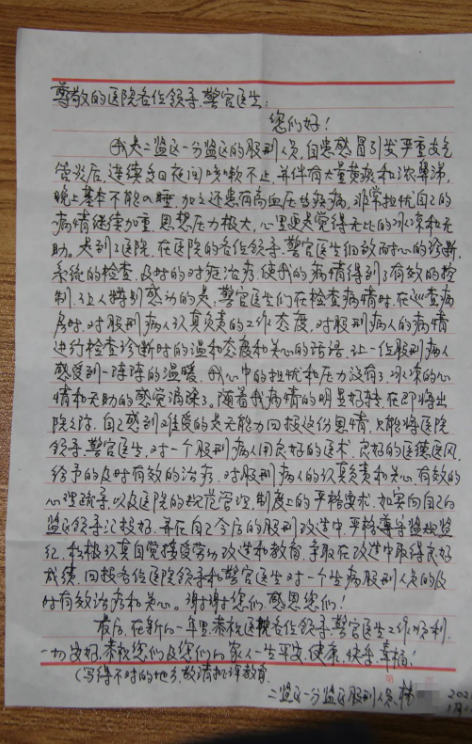 尊敬的医院各位领导、警官医生：
您们好！
我是二监区一分监区的服刑人员，自患感冒引发严重支气
管炎后，连续多日夜间咳嗽不止，并伴有大量黄痰和浓鼻涕，
晚上基本不能入睡，加之还患有高血压等疾病，非常担忧自己的
病情继续加重，思想压力极大，心里更是觉得无比的冰凉和无
助。来到了医院，在医院的各位领导、警官医生们细致耐心的诊断，
系统的检查，及时的对症治疗，使我的病情得到了有效的控
制，让人特别感动的是，警官医生们在检查病情时，在巡查病
房时，对服刑病人认真负责的工作态度，对服刑病人的病情
进行检查诊断时的温和态度和关心的话语，让一位服刑病人
感受到一阵阵的温暖，我心中的担忧和压力没有了，冰凉的心
情和无助的感觉消除了，随着我病情的明显好转，在即将出
院之际，自己感到难受的是无能力回报这份恩情，只能将医院
领导、警官医生，对一个服刑病人用良好的医术，良好的医德医风
给予的及时有效的治疗，对服刑病人的认真负责和关心，有效的
心理疏导，以及医院的规范管理，制度上的严格要求，如实向自己的
监区领导汇报好，并在自己今后的服刑改造中，严格遵守监规监
纪，积极认真自觉接受劳动改造和教育，争取在改造中取得良好
成绩，回报各位医院领导和警官医生对一个生病服刑人员的及
时有效治疗和关心。谢谢您们，感恩您们！
最后，在新的一年里，恭祝医院各位领导、警官医生工作顺利，
一切安好，恭祝您们及您们的家人一生平安，健康，快乐，幸福！
（写得不对的地方，敬请批评教育
二监区一分监区服刑人员：杨
202
1月